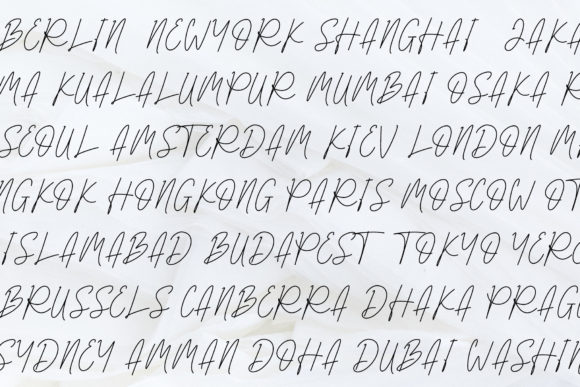 BERLIN NEWYORK SHANGHAI JAKA
MA KUALALUMPUR MUMBAI OSAKA R
SEOUL AMSTERDAM KIEV LONDON MA
NGKOK HONGKONG PARIS MOSCOW OT
ISLAMABAD BUDAPEST TOKYO YERE
BRUSSELS CANBERRA DHAKA PRAG
SYDNEY AMMAN DOHA DUBAI WASHIN